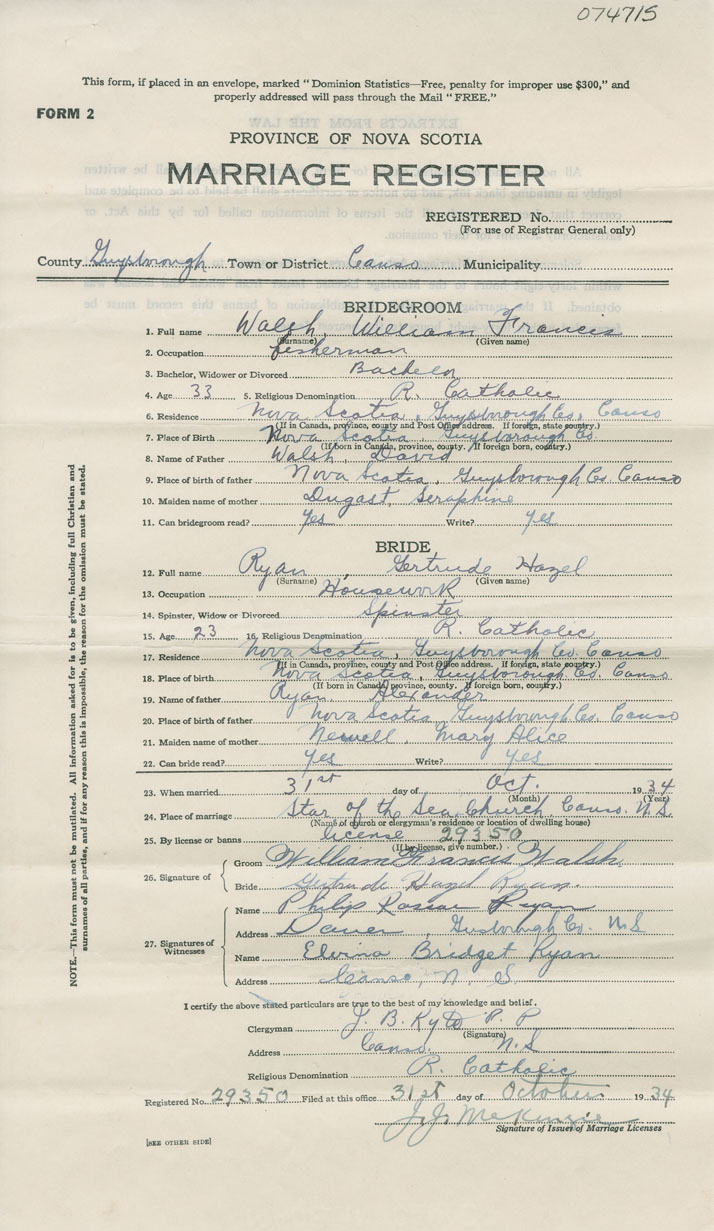 074715
This form, if placed in an envelope, marked "Dominion Statistics—Free, penalty for improper use $300," and
properly addressed will pass through the Mail "FREE."
FORM 2
PROVINCE OF NOVA SCOTIA
MARRIAGE REGISTER
REGISTERED No.
(For use of Registrar General only)
County Guysborough Town or District Canso Municipality
BRIDEGROOM
1. Full name Walsh, William Francis
(Surname) (Given name)
2. Occupation fisherman
3. Bachelor, Widower or Divorced Bachelor
4. Age 33 5. Religious Denomination R. Catholic
6. Residence Nova Scotia, Guysborough Co. Canso
(If in Canada, province, county and Post Office address. If foreign, state country.)
7. Place of Birth Nova Scotia, Guysborough Co.
(If born in Canada, province, county. If foreign born, country.)
8. Name of Father Walsh, David
9. Place of birth of father Nova Scotia, Guysborough Co. Canso
10. Maiden name of mother Dugast, Seraphine
11. Can bridegroom read? yes Write? yes
BRIDE
12. Full name Ryan, Gertrude Hazel
(Surname) (Given name)
13. Occupation Housework
14. Spinster, Widow or Divorced Spinster
15. Age 23 16. Religious Denomination R. Catholic
17. Residence Nova Scotia, Guysborough Co. Canso
(If in Canada, province, county and Post Office address. If foreign, state country.)
18. Place of birth Nova Scotia, Guysborough Co. Canso
(If born in Canada, province, county. If foreign born, country.)
19. Name of father Ryan Alexander
20. Place of birth of father Nova Scotia, Guysborough Co. Canso
21. Maiden name of mother Newell, Mary Alice
22. Can bride read? yes Write? yes
23. When married 31st day of Oct. 1934
(Month) (Year)
24. Place of marriage Star of the Sea Church, Canso. N.S.
(Name of church or clergyman's residence or location of dwelling house)
25. By license or banns license 29350
(If by license, give number.)
26. Signature of
Groom William Francis Walsh.
Bride Gertrude Hazel Ryan.
27. Signatures of Witnesses
Name Philip Ryan
Address Guysborough Co. N.S
Name Elvina Bridget Ryan
Address Canso, N. S
I certify the above stated particulars are true to the best of my knowledge and belief.
Clergyman J. B. Kyto P. P
(Signature)
Address Canso. N.S
Religious Denomination R. Catholic
Registered No. 29350 Filed at this office 31st day of October 1934
McKenzie
Signature of Issuer of Marriage Licenses
[SEE OTHER SIDE]
NOTE.—This form must not be mutilated. All information asked for is to be given, including full Christian and
surnames of all parties, and if for any reason this is impossible, the reason for the omission must be stated.